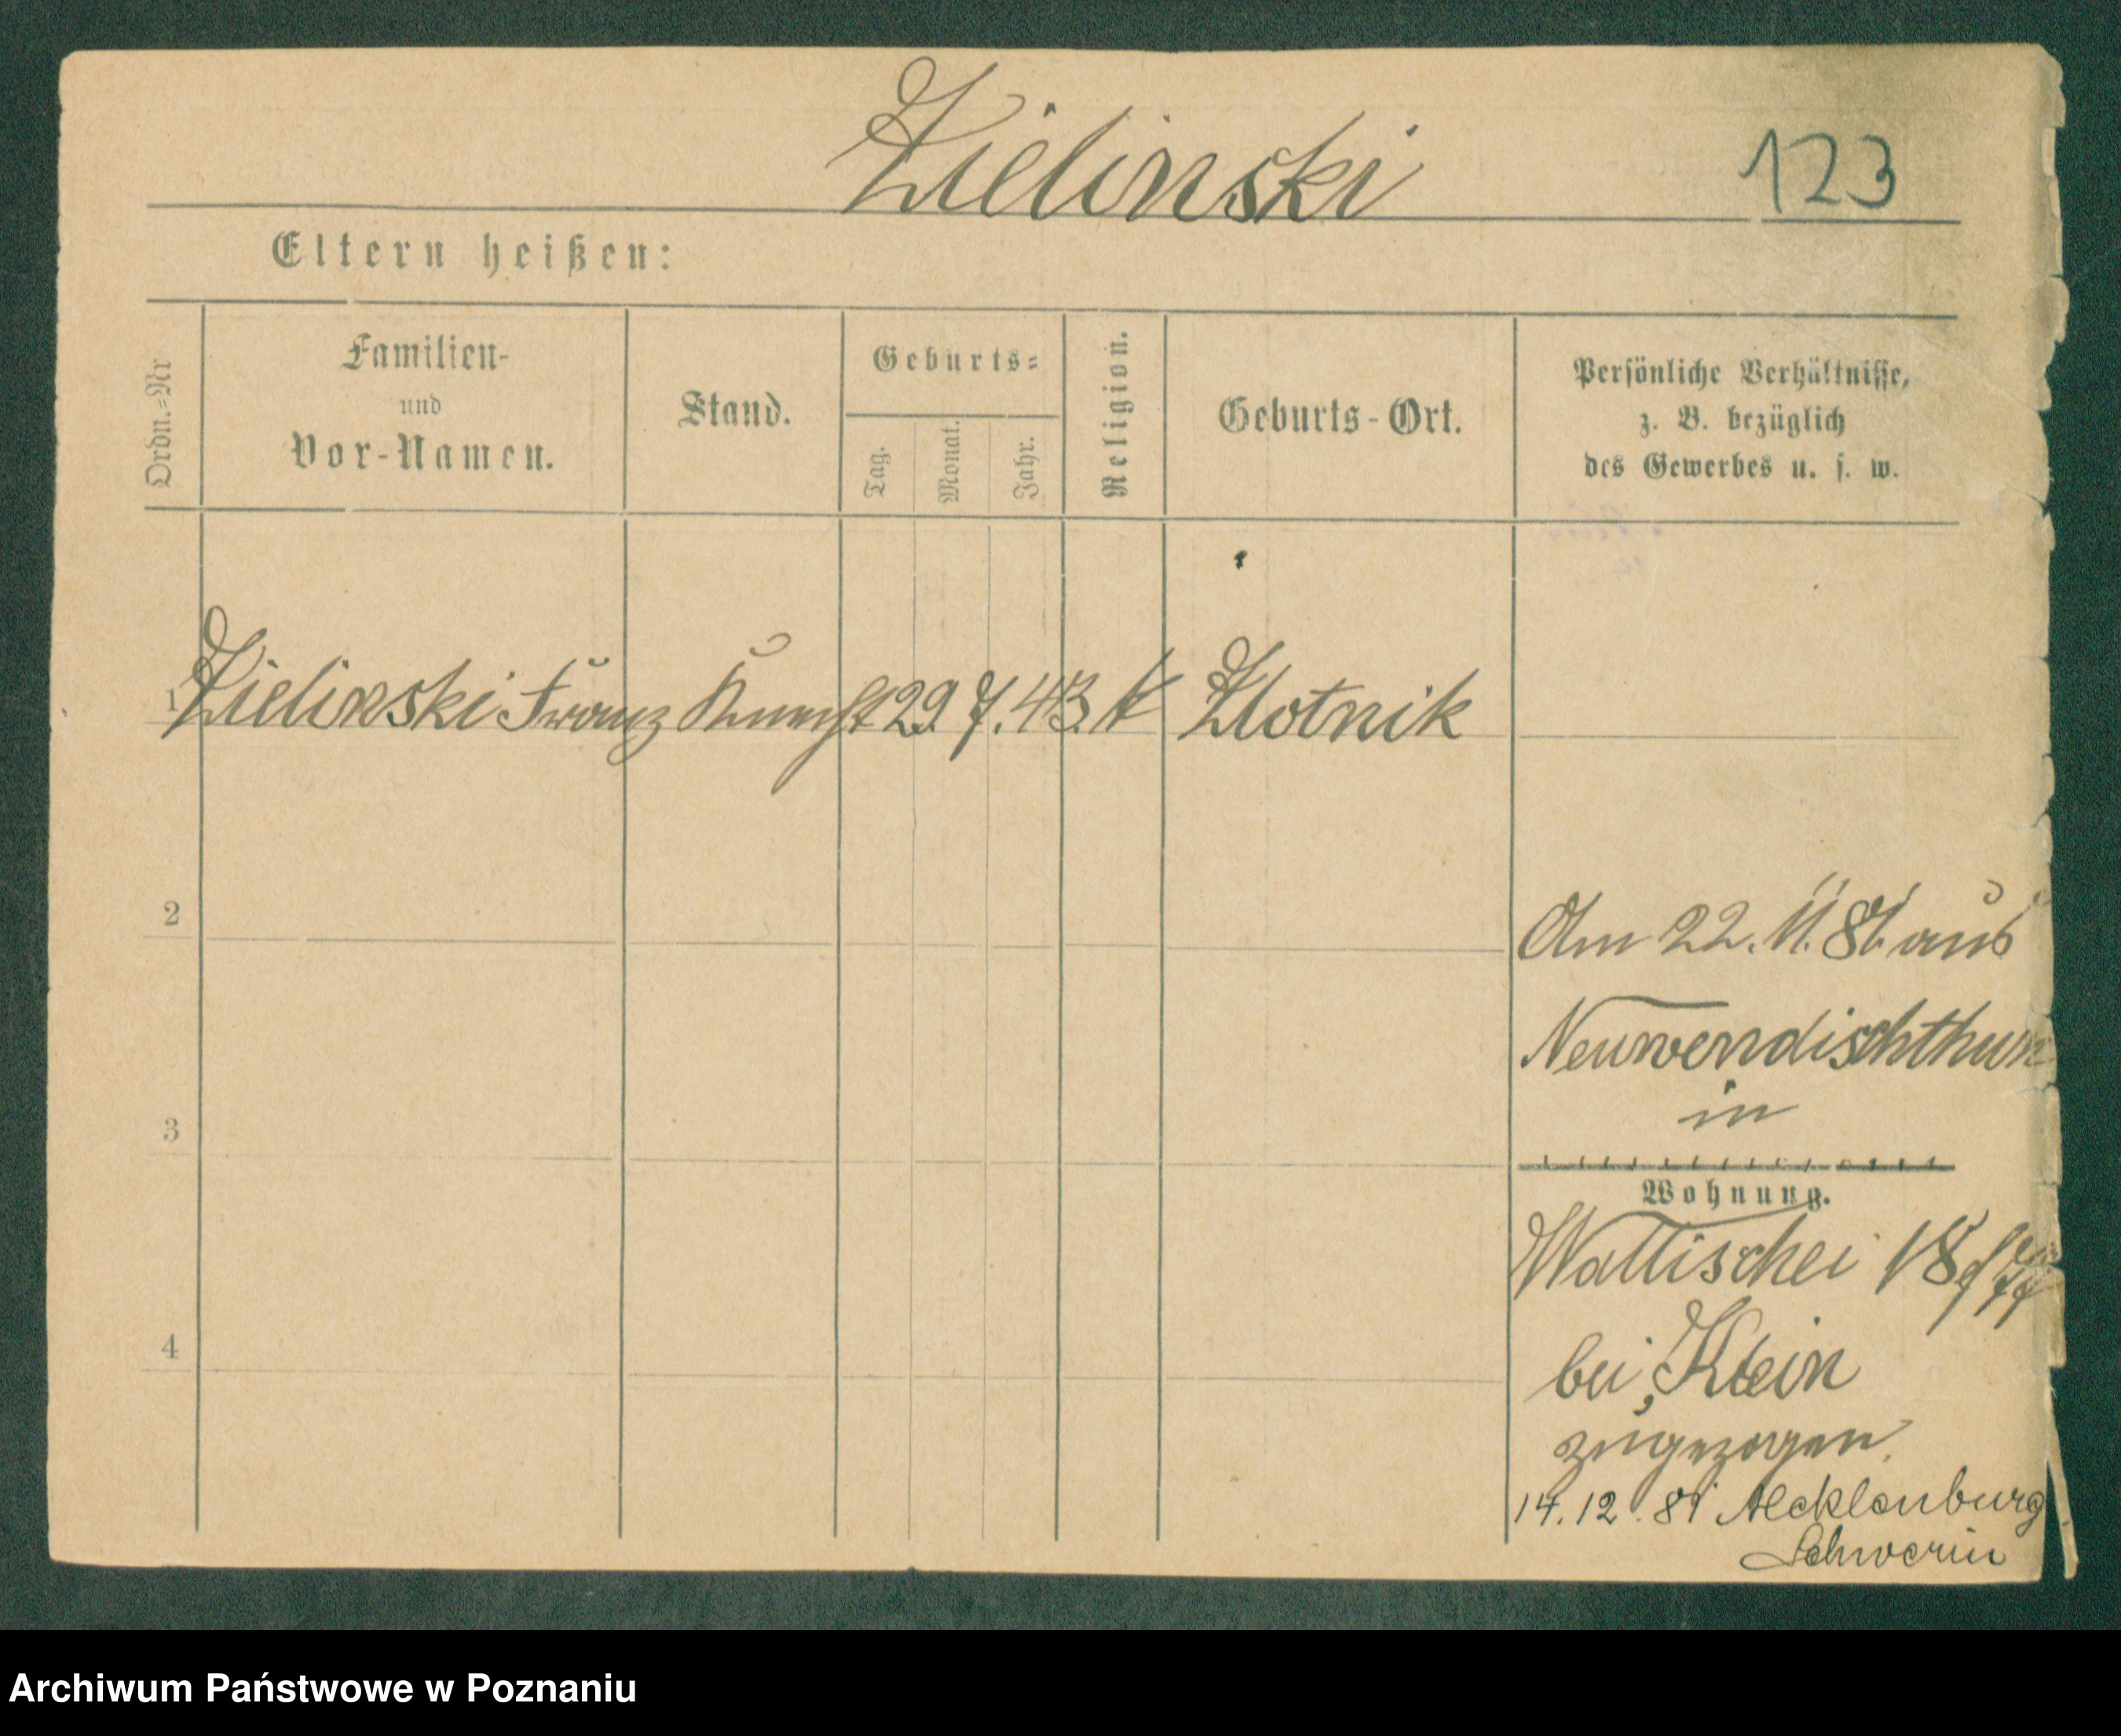 Zielinski
123
Eltern heißen:
Ordn.-Nr
Familien-
und
Vor-Namen.
Stand.
Geburts-
Tag.
Monat.
Jahr.
Religion.
Geburts-Ort.
Persönliche Verhältnisse,
z. B. bezüglich
des Gewerbes u. s. w.
1 Zielinski Franz Knecht 29. 7. 43. k Zlotnik
2
Am 22. 11. 81 aus
Neuwendischthun
3
in
Wohnung.
Wallischei 18
4
bei Klein
zugezogen.
14. 12. 81 Mecklenburg
Schwerin
Archiwum Państwowe w Poznaniu